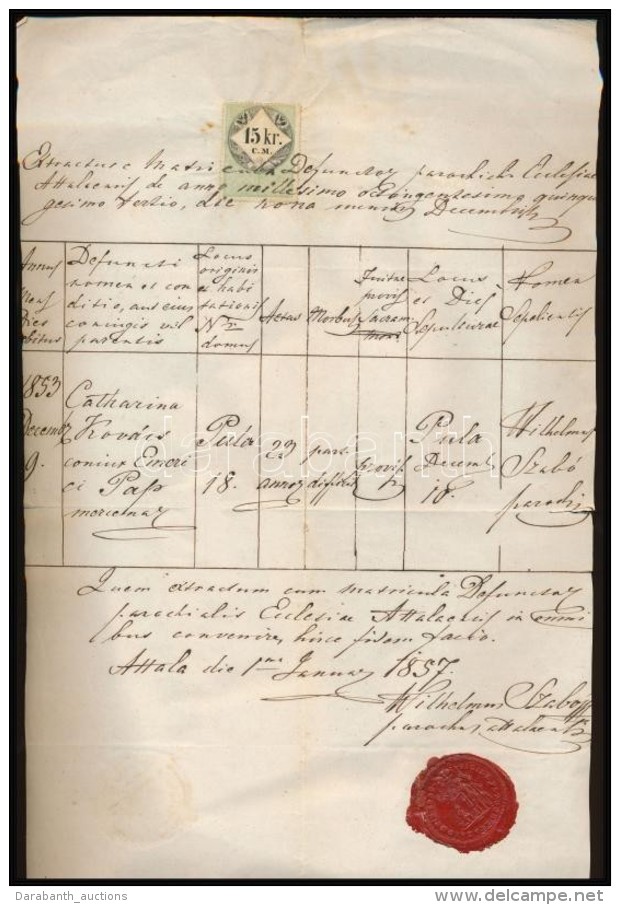 15 kr.
C.M.
Extractus Matriculae Defunctor parochialis Ecclesiae
Attalaensis de anno millesimo octingentesimo quinqua
gesimo tertio, die nona mensis Decembris
Annus
Mens
Dies
obitus
Defuncti
nomen et con
ditio, aut ejus
conjugis vel
parentis
Locus
originis
et habi
tationis
Nr
domus
Aetas
Morbus
Sacram
Locus
et Dies
Sepulturae
Nomen
Sepelientis
1853
Decemb
9.
Catharina
Kovács
coniux Emeri
ci Pap
Pula
18.
23
annor
par.
diffic
provis
Pula
Decemb
Wilhelmus
Szabó
parochus
darabanth
Quem extractum cum matricula Defunctor
parochialis Ecclesiae Attalaensis in omni
bus convenire, hisce fidem facio.
Attala die 1ma Januar 1857.
Wilhelmus Szabó
parochus attalaensis
Darabanth_auctions
www.delcampe.net